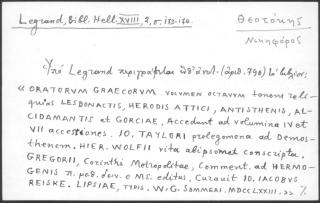 Legrand, Bibl. Hell. XVIII, 2, σ. 173-174.
Θεοτόκης
Νικηφόρος
Ὑπὸ Legrand περιγράφεται (ἀριθ. 790)
« ORATORUM GRAECORUM VOLUMEN OCTAVUM tenens reli-
quias LESBONACTIS, HERODIS ATTICI, ANTISTHENIS, AL-
CIDAMANTIS et GORCIAE, Accedunt ad volumina IV et
VII accessiones. IO. TAYLORI prolegomena ad Demos-
thenem. HIER. WOLFII vita abipsomet conscripta.
GREGORII, Corinthi Metropolitae, Comment. ad HERMO-
GENIS π. μεθ. δειν. e MS. editus. Curauit IO. IACOBUS
REISKE. LIPSIAE, TYPIS. W. G. SOMMERI. MDCCLXXIII. »